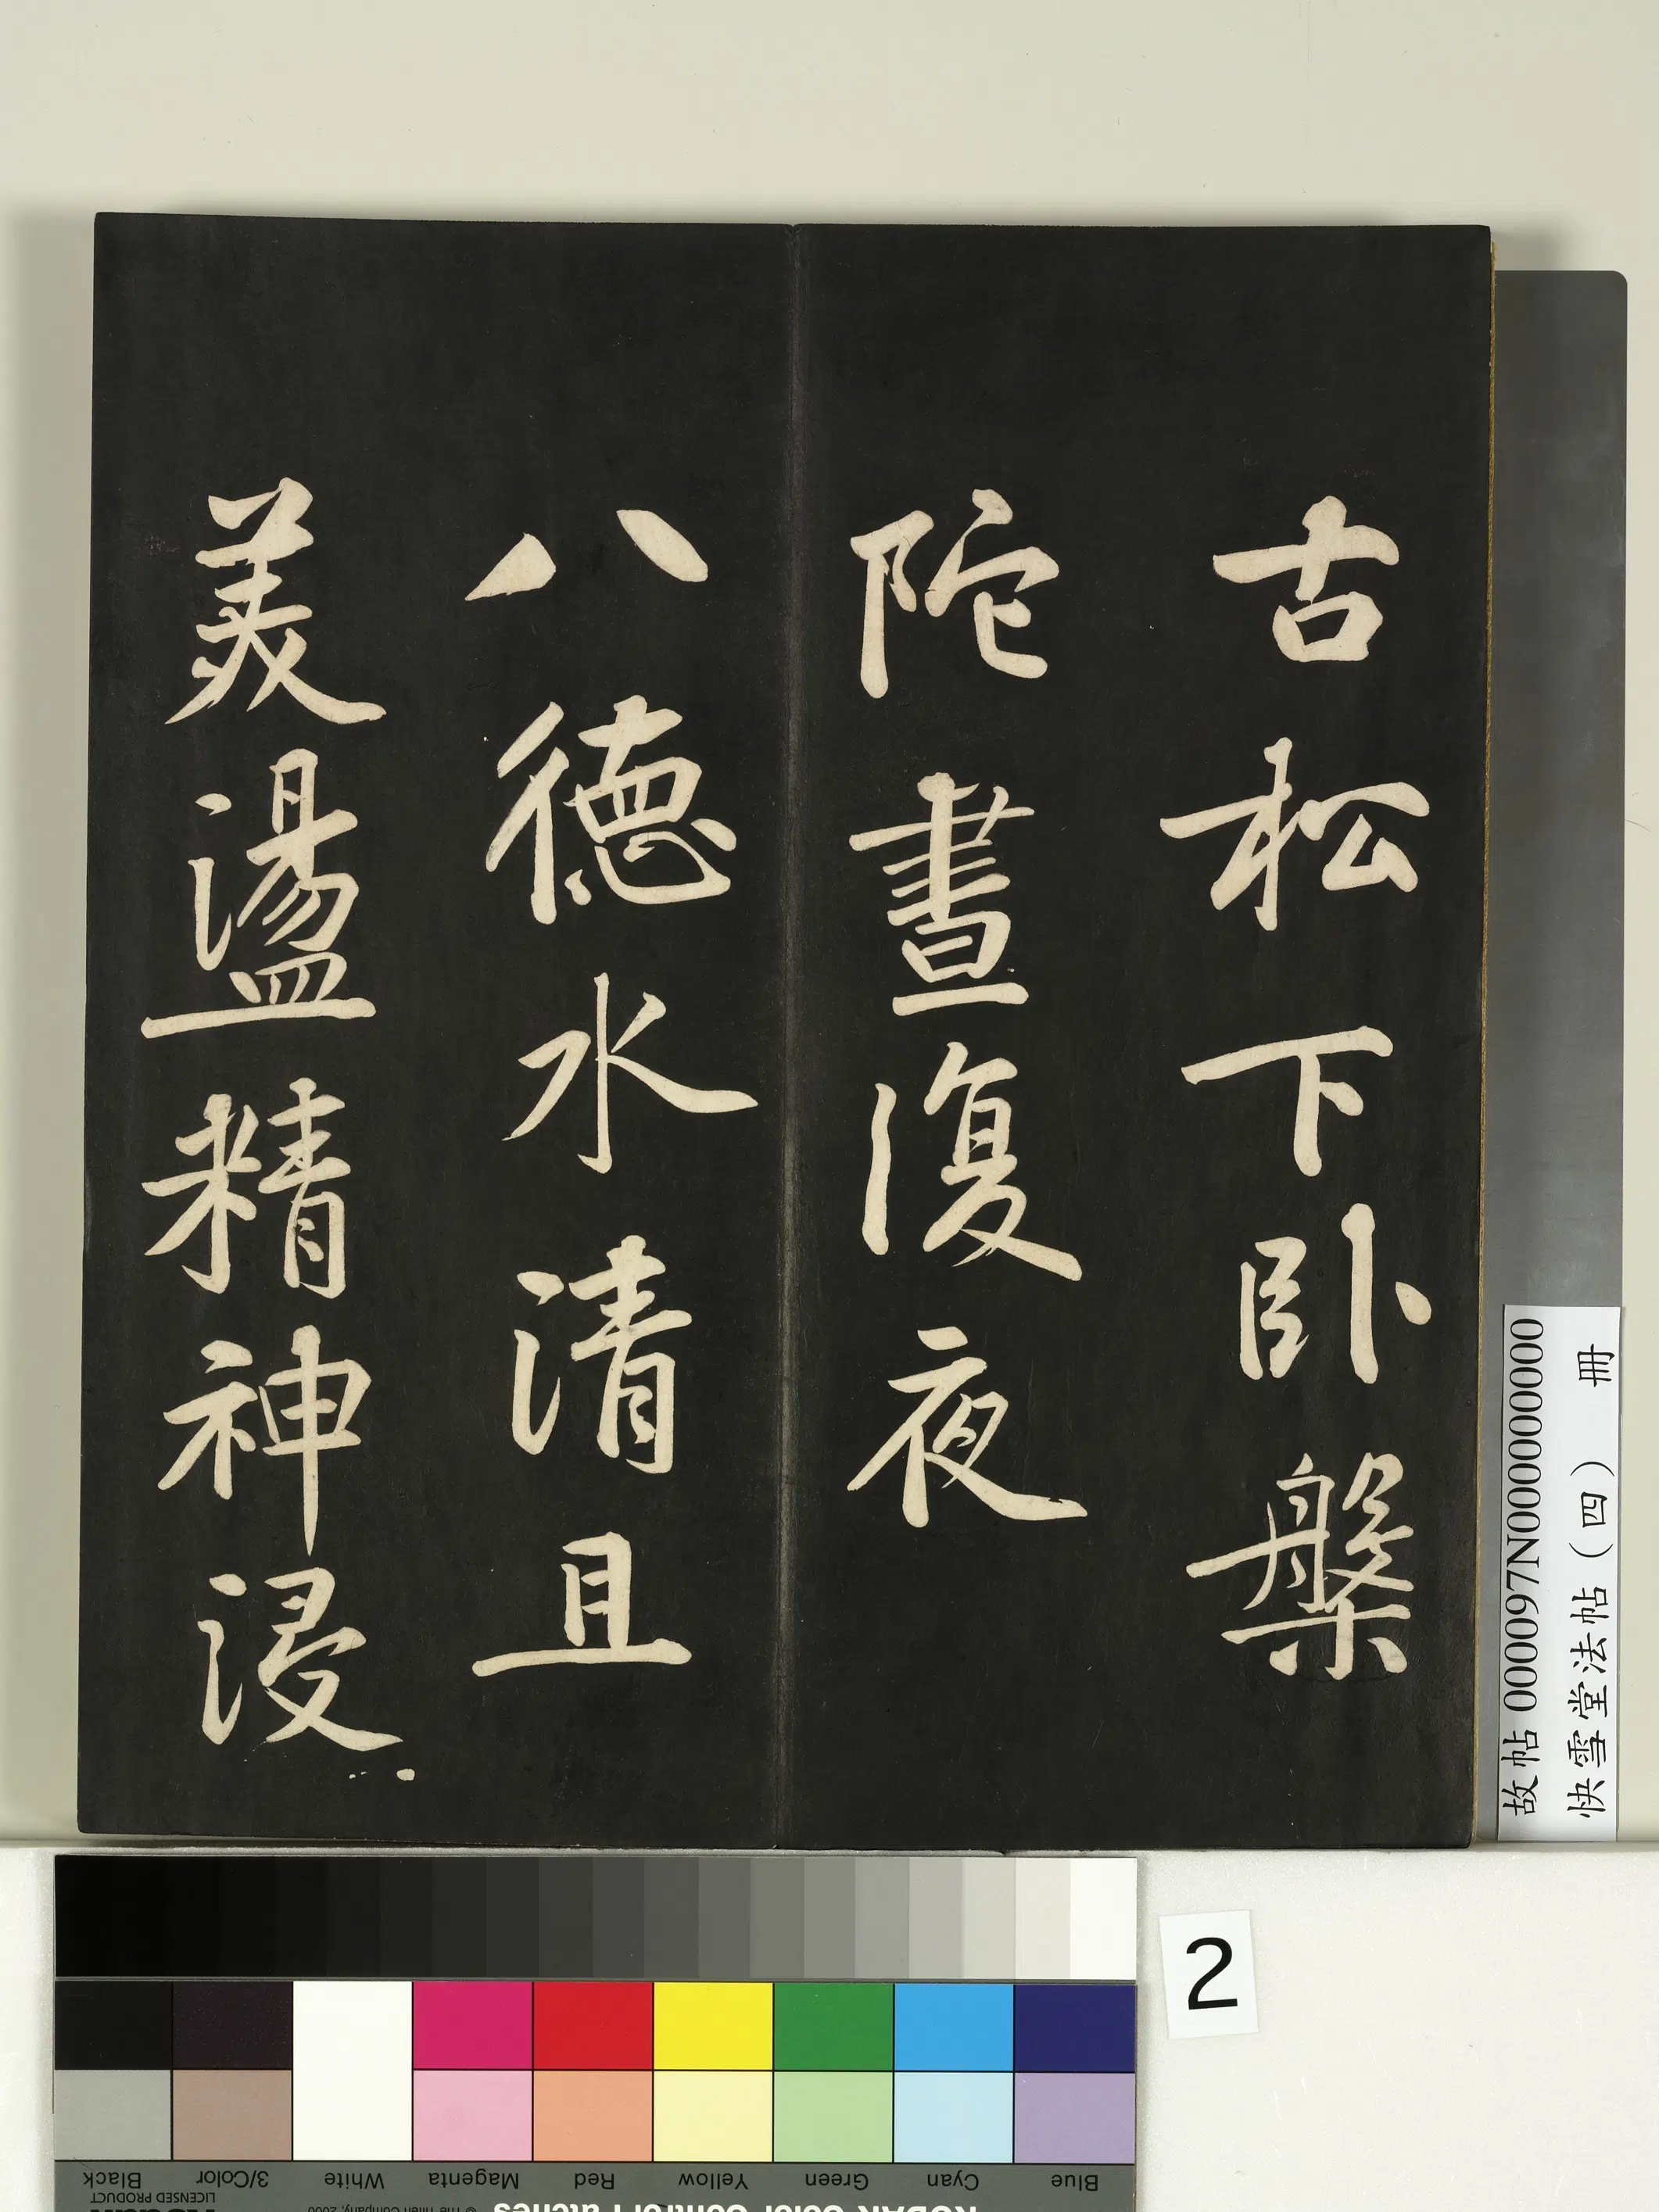 古松下卧槃
陀晝復夜
八德水清且
美盪精神浸
故帖 000097N000000000
快雪堂法帖（四） 冊
2
Blue
Cyan
Green
Yellow
Red
Magenta
White
3/Color
Black
KODAK Color Control Patches
© The Tiffen Company, 2000
LICENSED PRODUCT